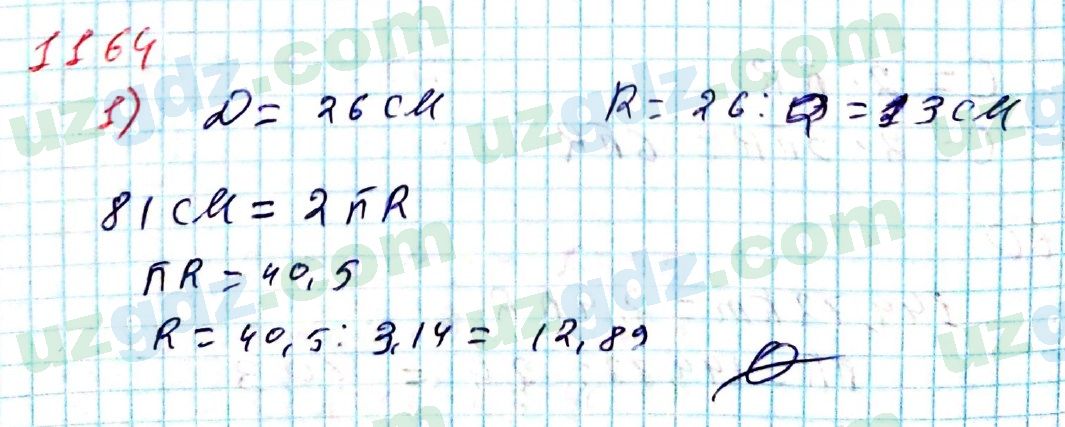 1164
1) D = 26 см R = 26 : 2 = 13 см
81 см = 2πR
πR = 40,5
R = 40,5 : 3,14 = 12,89
uzgdz.com
uzgdz.com
uzgdz.com
uzgdz.com
uzgdz.com